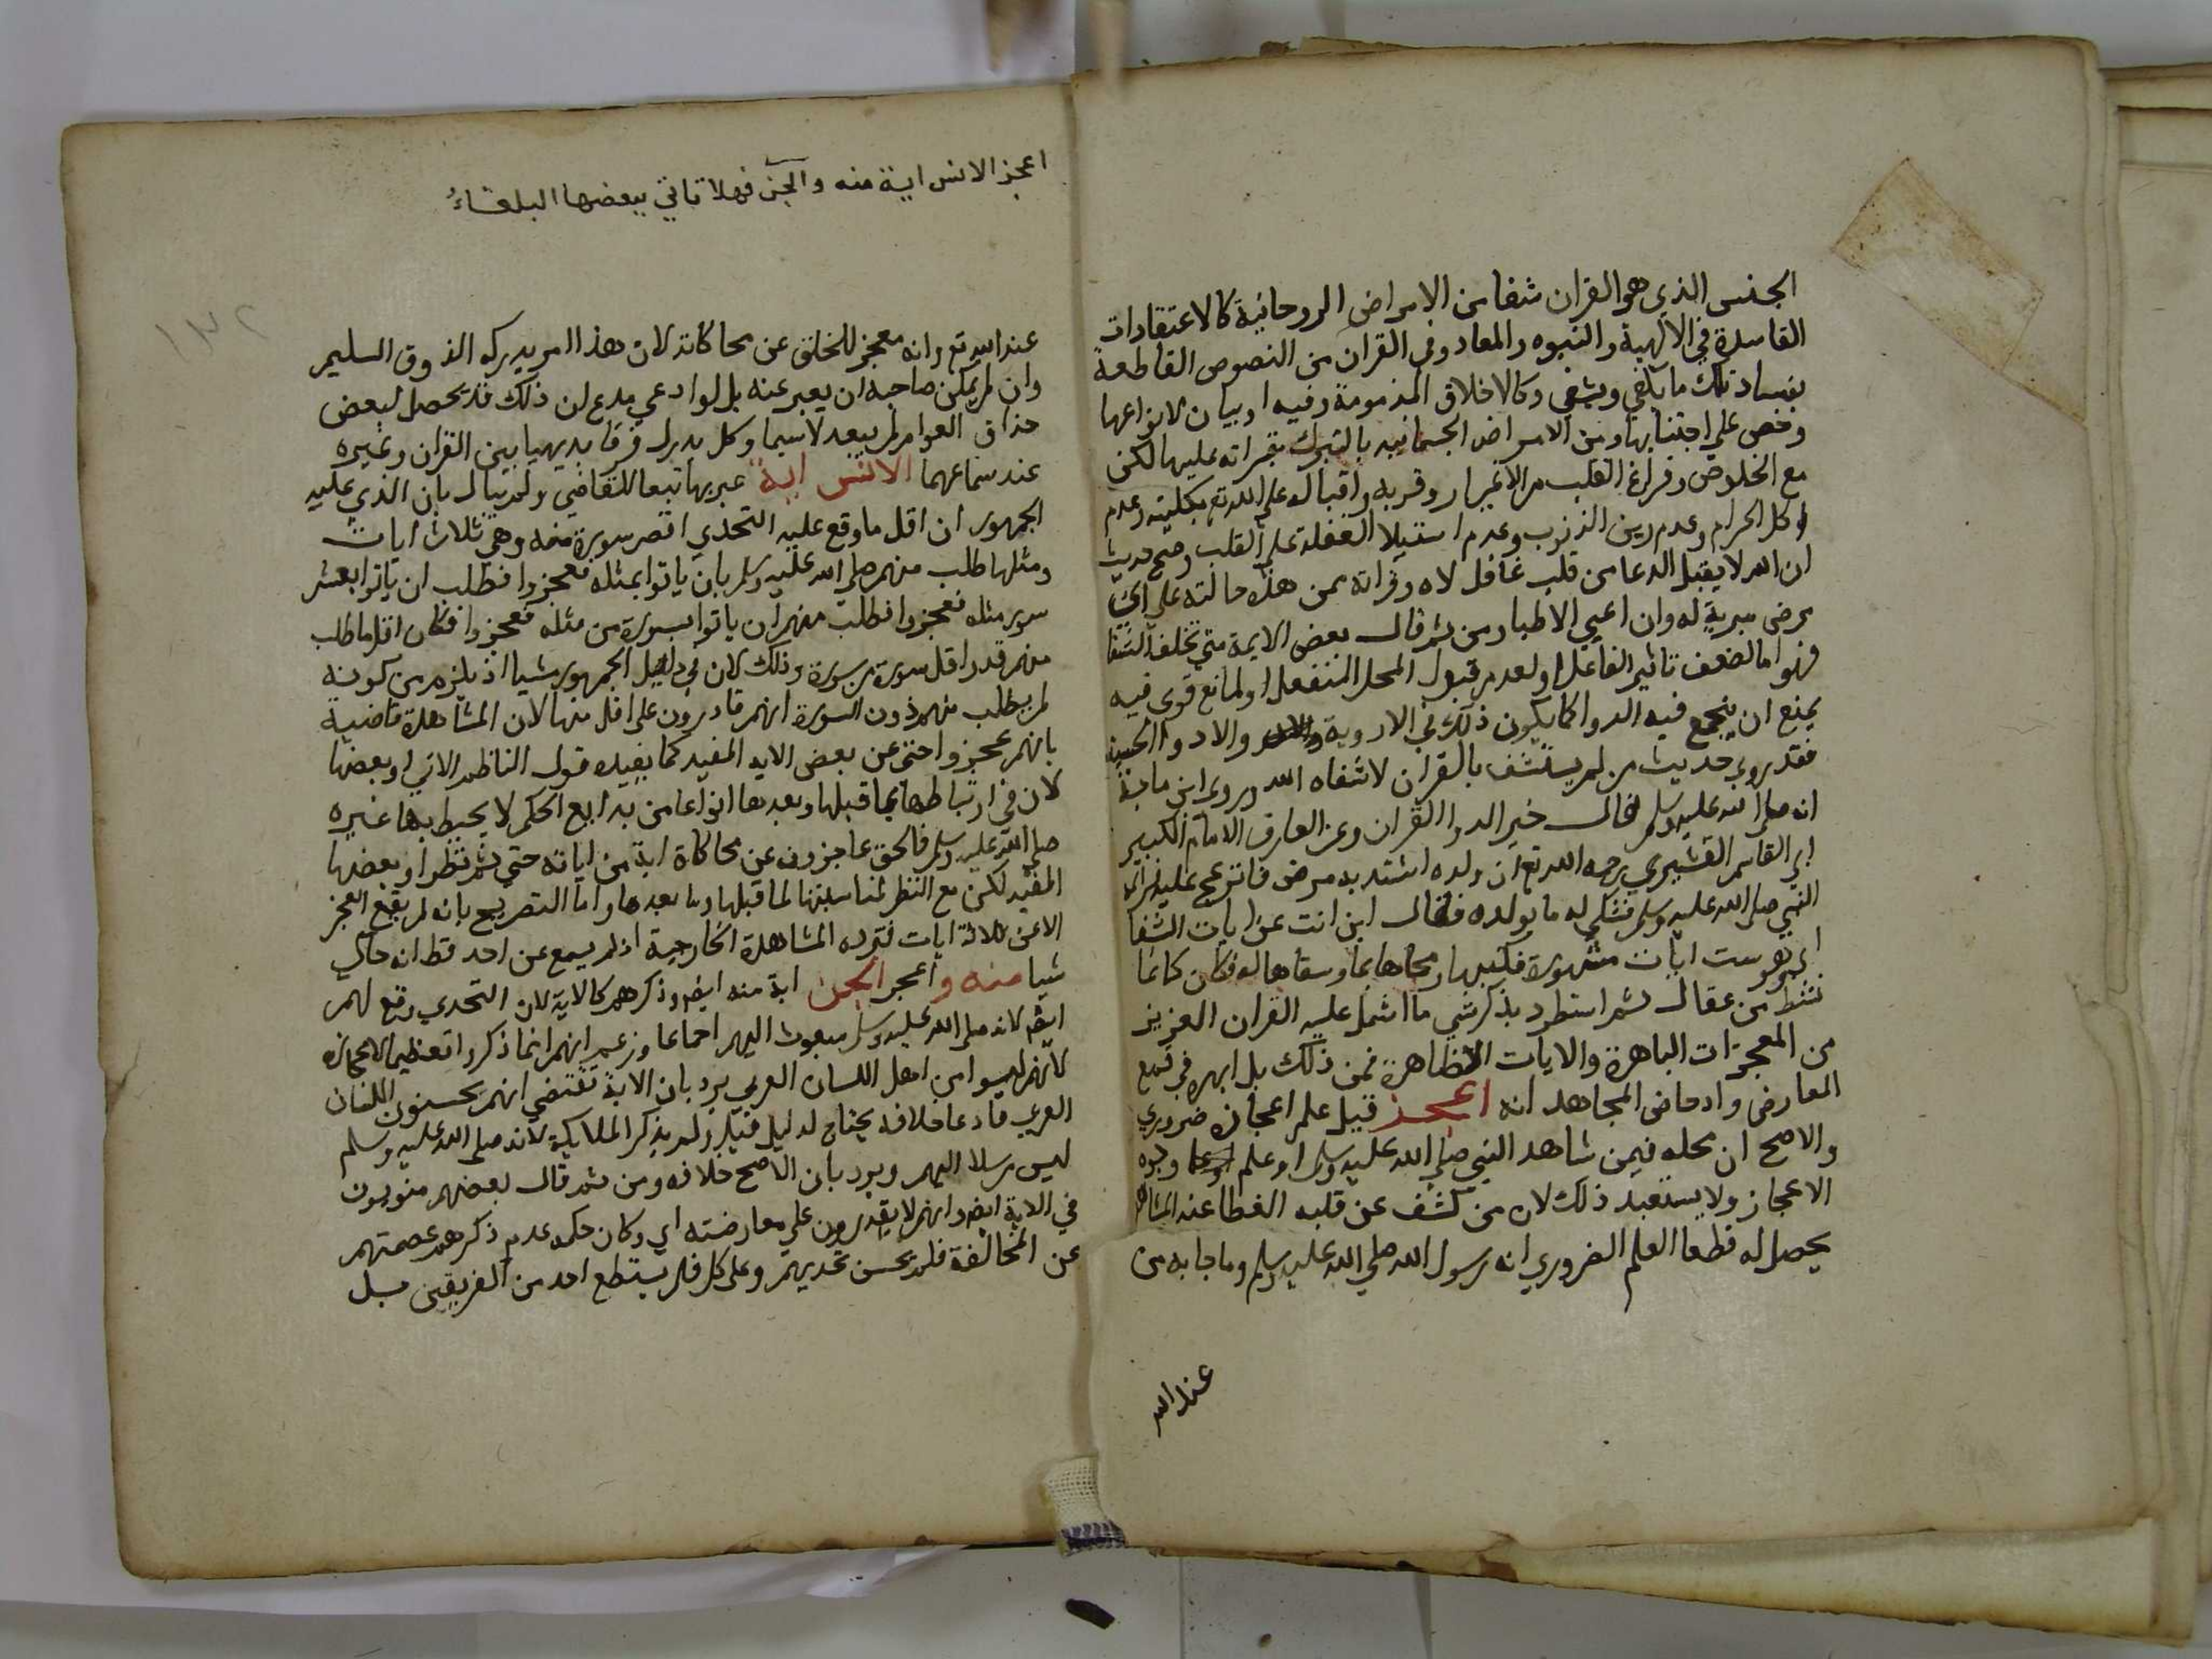 الجنس الذي هو القران شفا من الامراض الروحانية كالاعتقادات
الفاسدة في الالهية والنبوه والمعاد وفي القران من النصوص القاطعة
بفساد تلك ما يكفي ويشفي وكالاخلاق المذمومة وفيه اوبيان لانواعها
وحض على اجتنابها ومن الامراض الجسمانيه بالتبرك بقراته عليها لكن
مع الخلوص وفراغ القلب من الاغيار وقربه واقباله على الله تع بكليته وعدم
اكل الحرام وعدم رين الذنوب وعدم استيلا الغفلة على القلب وصح حديث
ان الله لا يقبل الدعا من قلب غافل لاه وقراته ممن هذه حالته على اي
مرض مبرية له وان اعيي الاطبا ومن ثم قال بعض الايمة متي تخلف الشفا
فهو اما لضعف تاثير الفاعل او لعدم قبول المحل المنفعل او لمانع قوي فيه
يمنع ان ينجع فيه الدوا كما يكون ذلك في الادوية والادوا الحسية
فقد روي حديث من لم يستشف بالقران لا شفاه الله وروي ابن ماجة
انه صلى الله عليه وسلم قال خير الدوا القران وعن العارف الامام الكبير
ابي القاسم القشيري رحمه الله تع ان ولده اشتد به مرض فانزعج عليه فراي
النبي صلى الله عليه وسلم فشكي له ما بولده فقال اين انت عن ايات الشفا
اي وهي ست ايات مشهورة فكتبها ومحاها بما وسقاها له فكان كانما
نشط من عقال ثم استطرد بذكر شي مما اشتمل عليه القران العزيز
من المعجزات الباهرة والايات الظاهرة فمن ذلك بل ابهره في قمع
المعارض وادحاض المجاهد انه اعجز قيل علم اعجازه ضروري
والاصح ان محله فيمن شاهد النبي صلى الله عليه وسلم او علم وجوه
الاعجاز ولا يستبعد ذلك لان من كشف عن قلبه الغطا عند
يحصل له قطعا العلم الضروري انه رسول الله صلي الله عليه وسلم وما جا به من
عند الله
اعجز الانس اية منه والجن فهلا تاتي ببعضها البلغاءُ
١٣٢
عند الله تع وانه معجز للخلق عن محاكاته لان هذا امر يدركه الذوق السليم
وان لم يمكن صاحبه ان يعبر عنه بل لو ادعي مدع ان ذلك قد يحصل لبعض
حذاق العوام لم يبعد لا سيما وكل يدرك فرقا بديهيا بين القران وغيره
عند سماعهما الانس اية عبر بها تبعا للقاضي ولم يبال بان الذي عليه
الجمهور ان اقل ما وقع عليه التحدي اقصر سورة منه وهي ثلاث ايات
ومثلها طلب منهم صلى الله عليه وسلم بان ياتوا بمثله فعجزوا فطلب ان ياتوا بعشر
سور مثله فعجزوا فطلب منهم ان ياتوا بسورة من مثله فعجزوا فكان اقل ما طلب
منهم قدر اقل سورة من سورة وذلك لان في دليل الجمهور شيا اذ يلزم من كونه
لم يطلب منهم دون السورة انهم قادرون على اقل منها لان المشاهدة قاضية
بانهم عجزوا حتى عن بعض الايه المفيد كما يفيده قول الناظم الاتي او بعضها
لان في ارتباطها بما قبلها وبعدها انواعا من بدايع الحكم لا يحيط بها غيره
صلى الله عليه وسلم فالحق عاجزون عن محاكاة اية من اياته حتي ثم نظر او بعضها
المفيد لكن مع النظر لمناسبتها لما قبلها وما بعدها واما التصريح بانه لم يقع العجز
الا عن ثلاثة ايات فترده المشاهدة الخارجية اذ لم يسمع عن احد قط انه حاكي
شيا منه و اعجز الجن اية منه ايضا وذكرهم كالاية لان التحدي وقع لهم
ايضا لانه صلى الله عليه وسلم مبعوث اليهم اجماعا وزعم انهم انما ذكروا تعظيما لاعجازه
لانهم ليسوا من اهل اللسان العربي يرد بان الاية تقتضي انهم يحسنون اللسان
العربي فادعا خلافه يحتاج لدليل قيل ولم يذكر الملايكة لانه صلى الله عليه وسلم
ليس مرسلا اليهم ويرد بان الاصح خلافه ومن ثم قال بعضهم منويون
في الاية ايضا وانهم لا يقدرون علي معارضته اي وكان حكمه عدم ذكرهم عصمتهم
عن المخالفة فلم يحسن تحديهم وعلى كل فلم يستطع احد من الفريقين بل